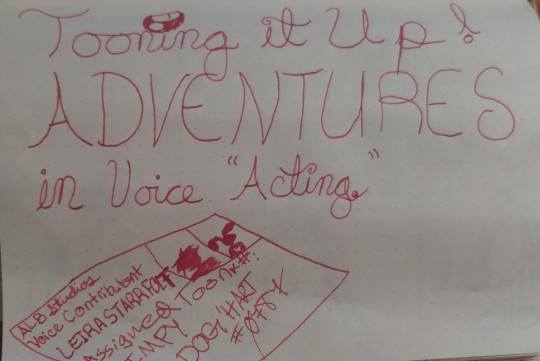 Tooning it Up!
ADVENTURES
in Voice "Acting."
ALB Studios
Voice Contributant
LEIRA STARRFOLT
Assigned Toon #:
IMPY
DOGI'HART